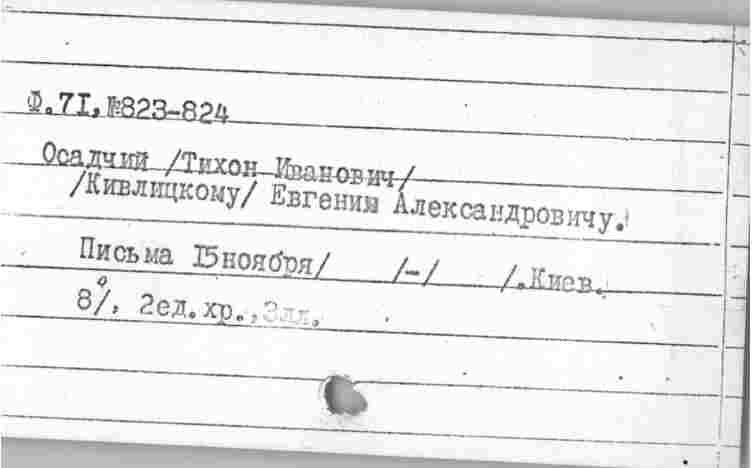 Ф.7I,№823-824
Осадчий /Тихон Иванович/
/Кивлицкому/ Евгению Александровичу.
Письма 15ноября/ /-/ /.Киев.
8°/, 2ед.хр.,3лл.